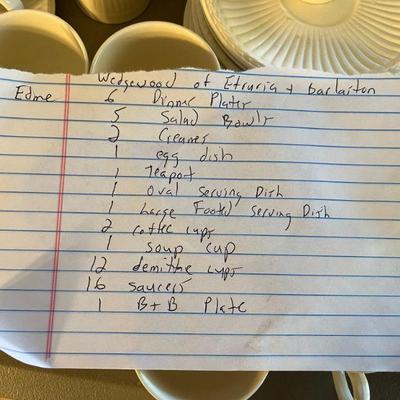 Wedgewood of Etruria + barlaston
Edme 6 Dinner Plates
5 Salad Bowls
2 Creamer
1 egg dish
1 Teapot
1 oval serving Dish
1 Large Footed serving Dish
2 coffee cups
1 soup cup
12 demithe cups
16 saucers
1 B+B Plate